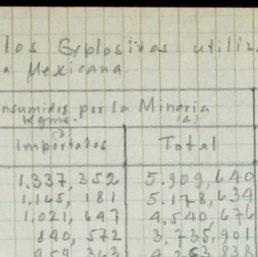 los Explosivos utiliz
a Mexicana.
nsumidos por la Minoria
Kgms.
(3) (4)
Importados Total
1.337,352 5.909,640
1.165,181 5.178,634
1.021,647 4.540,676
840,572 3.735,901
959,363 4.263,838